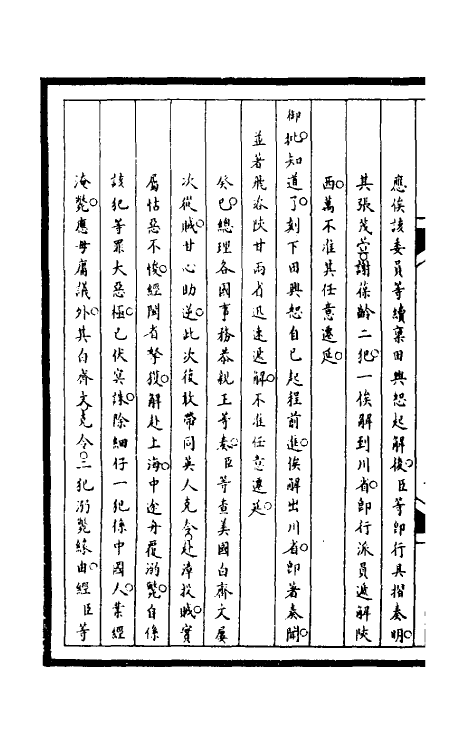 應俟該委員等續稟田興恕起解後。臣等即行具摺奏明。
其張茂萱。謝葆齡二犯。一俟解到川省。即行派員遞解陝
西。萬不准其任意遷延。
御批。知道了。刻下田興恕自已起程前進。俟解出川省。即著奏聞。
並著飛咨陝甘兩省迅速遞解。不准任意遷延。
癸巳。總理各國事務恭親王等奏。臣等查美國白齊文屢
次從賊。甘心助逆。此次復敢帶同英人克令。赴漳投賊。實
屬怙惡不悛。經閩省拏獲。解赴上海。中途舟覆溺斃。自係
該犯等罪大惡極。已伏冥誅。除細仔一犯係中國人。業經
淹斃。應毋庸議外。其白齊文克令。二犯溺斃緣由。經臣等